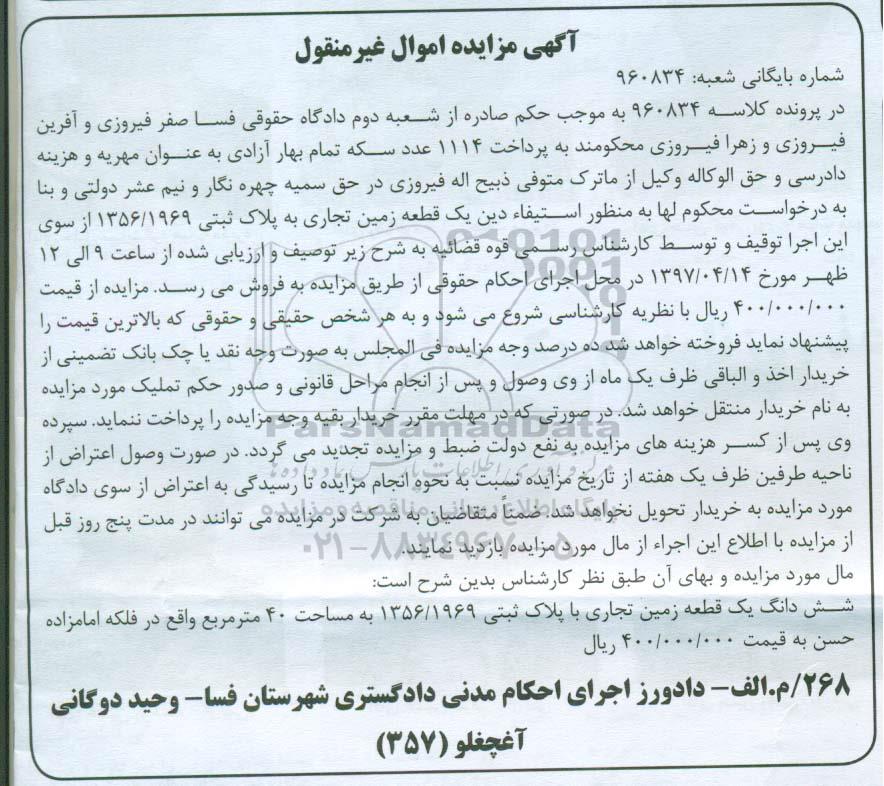 آگهی مزایده اموال غیرمنقول
شماره بایگانی شعبه: ۹۶۰۸۳۴
در پرونده کلاسه ۹۶۰۸۳۴ به موجب حکم صادره از شعبه دوم دادگاه حقوقی فسا صفر فیروزی و آفرین
فیروزی و زهرا فیروزی محکومند به پرداخت ۱۱۱۴ عدد سکه تمام بهار آزادی به عنوان مهریه و هزینه
دادرسی و حق الوکاله وکیل از ماترک متوفی ذبیح اله فیروزی در حق سمیه چهره نگار و نیم عشر دولتی و بنا
به درخواست محکوم لها به منظور استیفاء دین یک قطعه زمین تجاری به پلاک ثبتی ۱۳۵۶/۱۹۶۹ از سوی
این اجرا توقیف و توسط کارشناس رسمی قوه قضائیه به شرح زیر توصیف و ارزیابی شده از ساعت ۹ الی ۱۲
ظهر مورخ ۱۳۹۷/۰۴/۱۴ در محل اجرای احکام حقوقی از طریق مزایده به فروش می رسد. مزایده از قیمت
۴۰۰/۰۰۰/۰۰۰ ریال با نظریه کارشناسی شروع می شود و به هر شخص حقیقی و حقوقی که بالاترین قیمت را
پیشنهاد نماید فروخته خواهد شد ده درصد وجه مزایده فی المجلس به صورت وجه نقد یا چک بانک تضمینی از
خریدار اخذ و الباقی ظرف یک ماه از وی وصول و پس از انجام مراحل قانونی و صدور حکم تملیک مورد مزایده
به نام خریدار منتقل خواهد شد. در صورتی که در مهلت مقرر خریدار بقیه وجه مزایده را پرداخت ننماید. سپرده
وی پس از کسر هزینه های مزایده به نفع دولت ضبط و مزایده تجدید می گردد. در صورت وصول اعتراض از
ناحیه طرفین ظرف یک هفته از تاریخ مزایده نسبت به نحوه انجام مزایده تا رسیدگی به اعتراض از سوی دادگاه
مورد مزایده به خریدار تحویل نخواهد شد. ضمناً متقاضیان به شرکت در مزایده می توانند در مدت پنج روز قبل
از مزایده با اطلاع این اجراء از مال مورد مزایده بازدید نمایند.
مال مورد مزایده و بهای آن طبق نظر کارشناس بدین شرح است:
شش دانگ یک قطعه زمین تجاری با پلاک ثبتی ۱۳۵۶/۱۹۶۹ به مساحت ۴۰ مترمربع واقع در فلکه امامزاده
حسن به قیمت ۴۰۰/۰۰۰/۰۰۰ ریال
۲۶۸/م.الف- دادورز اجرای احکام مدنی دادگستری شهرستان فسا- وحید دوگانی
آغچغلو (۳۵۷)
ParsNamadData
۰۲۱-۸۸۳۴۹۶۷۰-۵